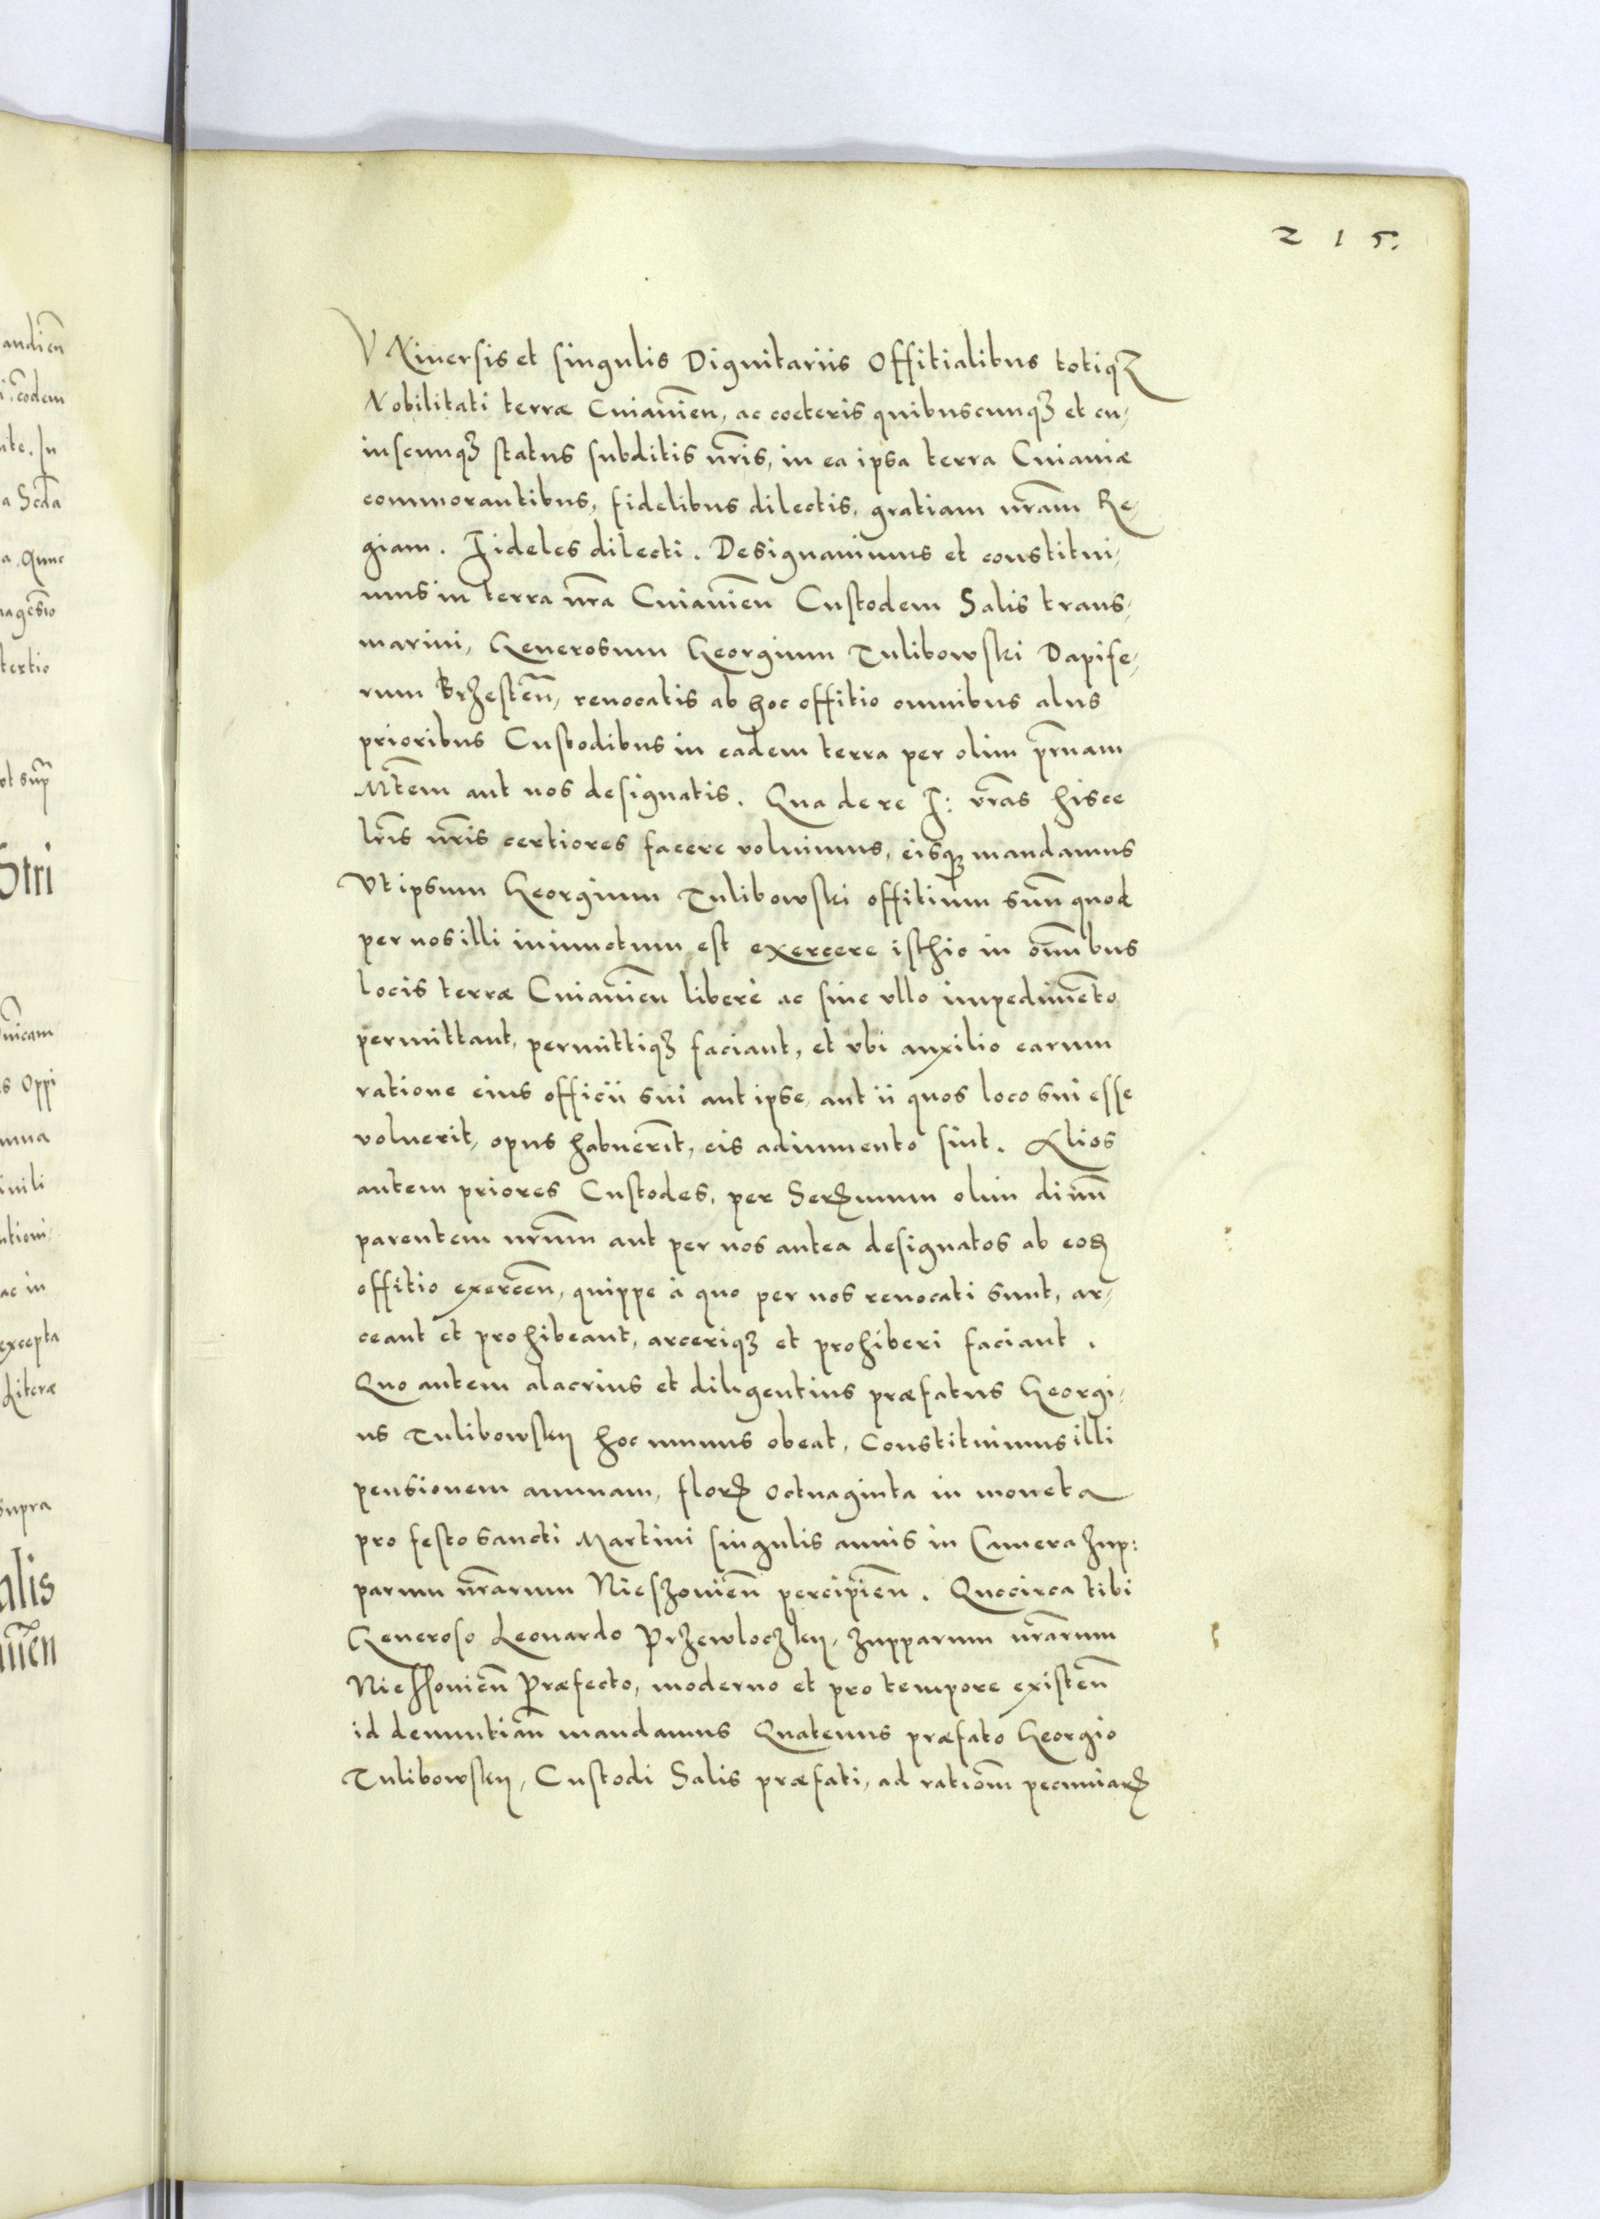 215.
VNiuersis et singulis Dignitariis Offitialibus totiqꝫ
Nobilitati terræ Cuiauien̄, ac cœteris quibuscunqꝫ et cu-
iuscunqꝫ status subditis nr̄is, in ea ipsa terra Cuiauiæ
commorantibus, fidelibus dilectis, gratiam nr̄am Re-
giam. Fideles dilecti. Designauimus et constitui-
mus in terra nr̄a Cuiauien̄ Custodem Salis trans-
marini, Generosum Georgium Tulibowski Dapife-
rum Brzesten̄, reuocatis ab hoc offitio omnibus aliis
prioribus Custodibus in eadem terra per olim pr̄nam
Mt̄em aut nos designatis. Qua de re F: vr̄as hisce
lr̄is nr̄is certiores facere voluimus, eisqꝫ mandamus
Vt ipsum Georgium Tulibowski offitium suū quod
per nos illi iniunctum est exercere isthic in om̄ibus
locis terræ Cuiauien̄ liberè ac sine vllo impedimēto
permittant, permittiqꝫ faciant, et vbi auxilio earum
ratione eius officii sui aut ipse, aut ii quos loco sui esse
voluerit, opus habuerīt, eis adiumento sint. Alios
autem priores Custodes, per Serꝫmum olim diuū
parentem nr̄um aut per nos antea designatos ab eoꝫ
offitio exercen̄, quippe à quo per nos reuocati sunt, ar-
ceant et prohibeant, arceriqꝫ et prohiberi faciant.
Quo autem alacrius et diligentius præfatus Georgi-
us Tulibowsky hoc munus obeat, Constituimus illi
pensionem annuam, florꝫ octuaginta in moneta
pro festo sancti Martini singulis annis in Camera Zup:
parum nr̄arum Nieszouien̄ percipien̄. Quocirca tibi
Generoso Leonardo Przewloczky, Zupparum nr̄arum
Niessouien̄ Præfecto, moderno et pro tempore existen̄
id denuntian̄ mandamus Quatenus præfato Georgio
Tulibowsky, Custodi Salis præfati, ad ration̄m pecuniarꝫ